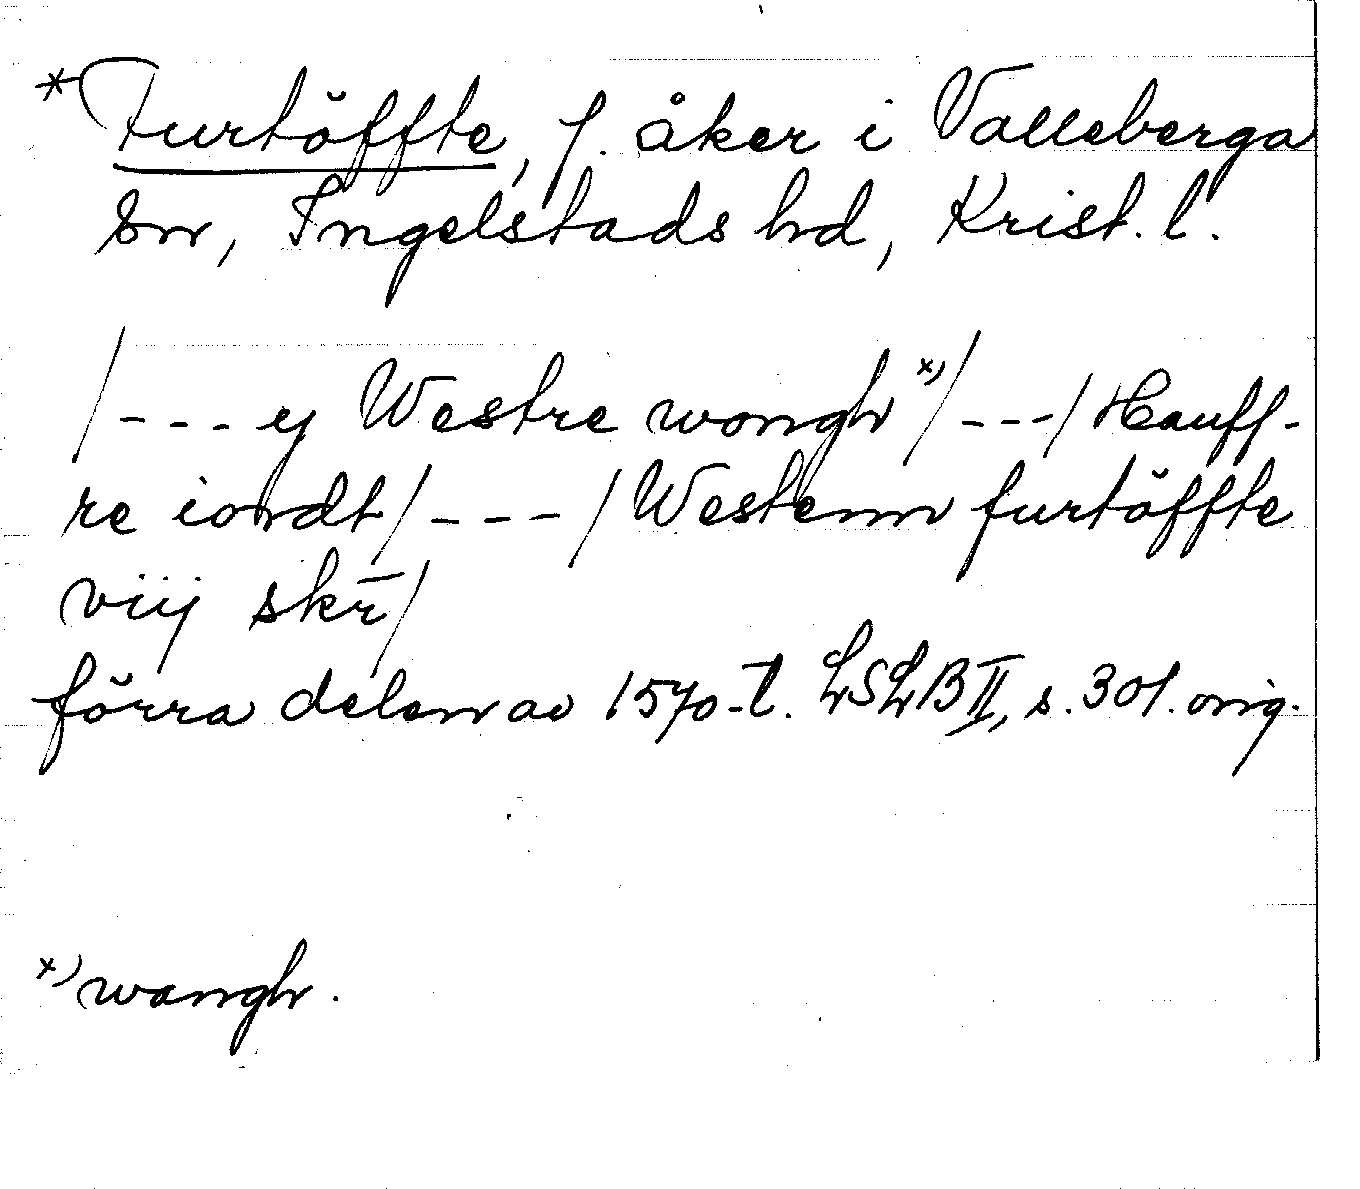 *Furtöffte, f. åker i Valleberga
sn, Ingelstads hd, Krist. l.
/--- ey Westre wongh x)/---/ Hauff-
re iordt/---/Westenn furtöffte
viij skr̄/
förra delen av 1570-t. LSLB II, s. 301. orig.
x) wangh.